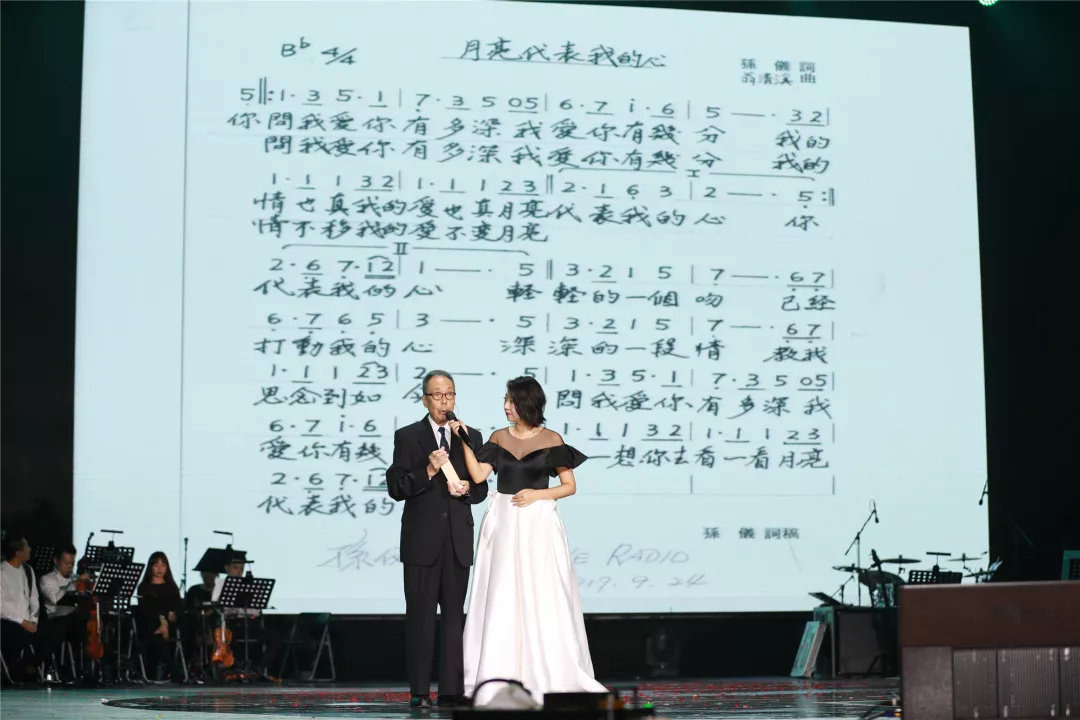 B♭ 4/4 月亮代表我的心
孫儀 詞
翁清溪 曲
5‖: 1·3 5·1 | 7·3 5 05 | 6·7 i·6 | 5 —— · 32 |
你 問我愛你有多深 我愛你有幾分 我的
問我愛你有多深 我愛你有幾分 我的
I
1·1 1 32 | 1·1 1 23 ‖ 2·1 6 3 | 2 —— · 5 :‖
情也真我的愛也真月亮代表我的心 你
情不移我的愛不變月亮
II
2·6 7·12 | 1 —— · 5 ‖ 3·2 1 5 | 7 —— · 67 |
代表我的心 輕輕的一個吻 已經
6·7 6 5 | 3 —— · 5 | 3·2 1 5 | 7 —— · 67 |
打動我的心 深深的一段情 教我
1·1 1 23 | 2 1·3 5·1 | 7·3 5 05 |
思念到如 問我愛你有多深 我
6·7 i·6 | 1·1 1 32 | 1·1 1 23 |
愛你有幾 一想你去看一看月亮
2·6 7·12
代表我的
孫儀 詞稿
孫 RADIO
9.24